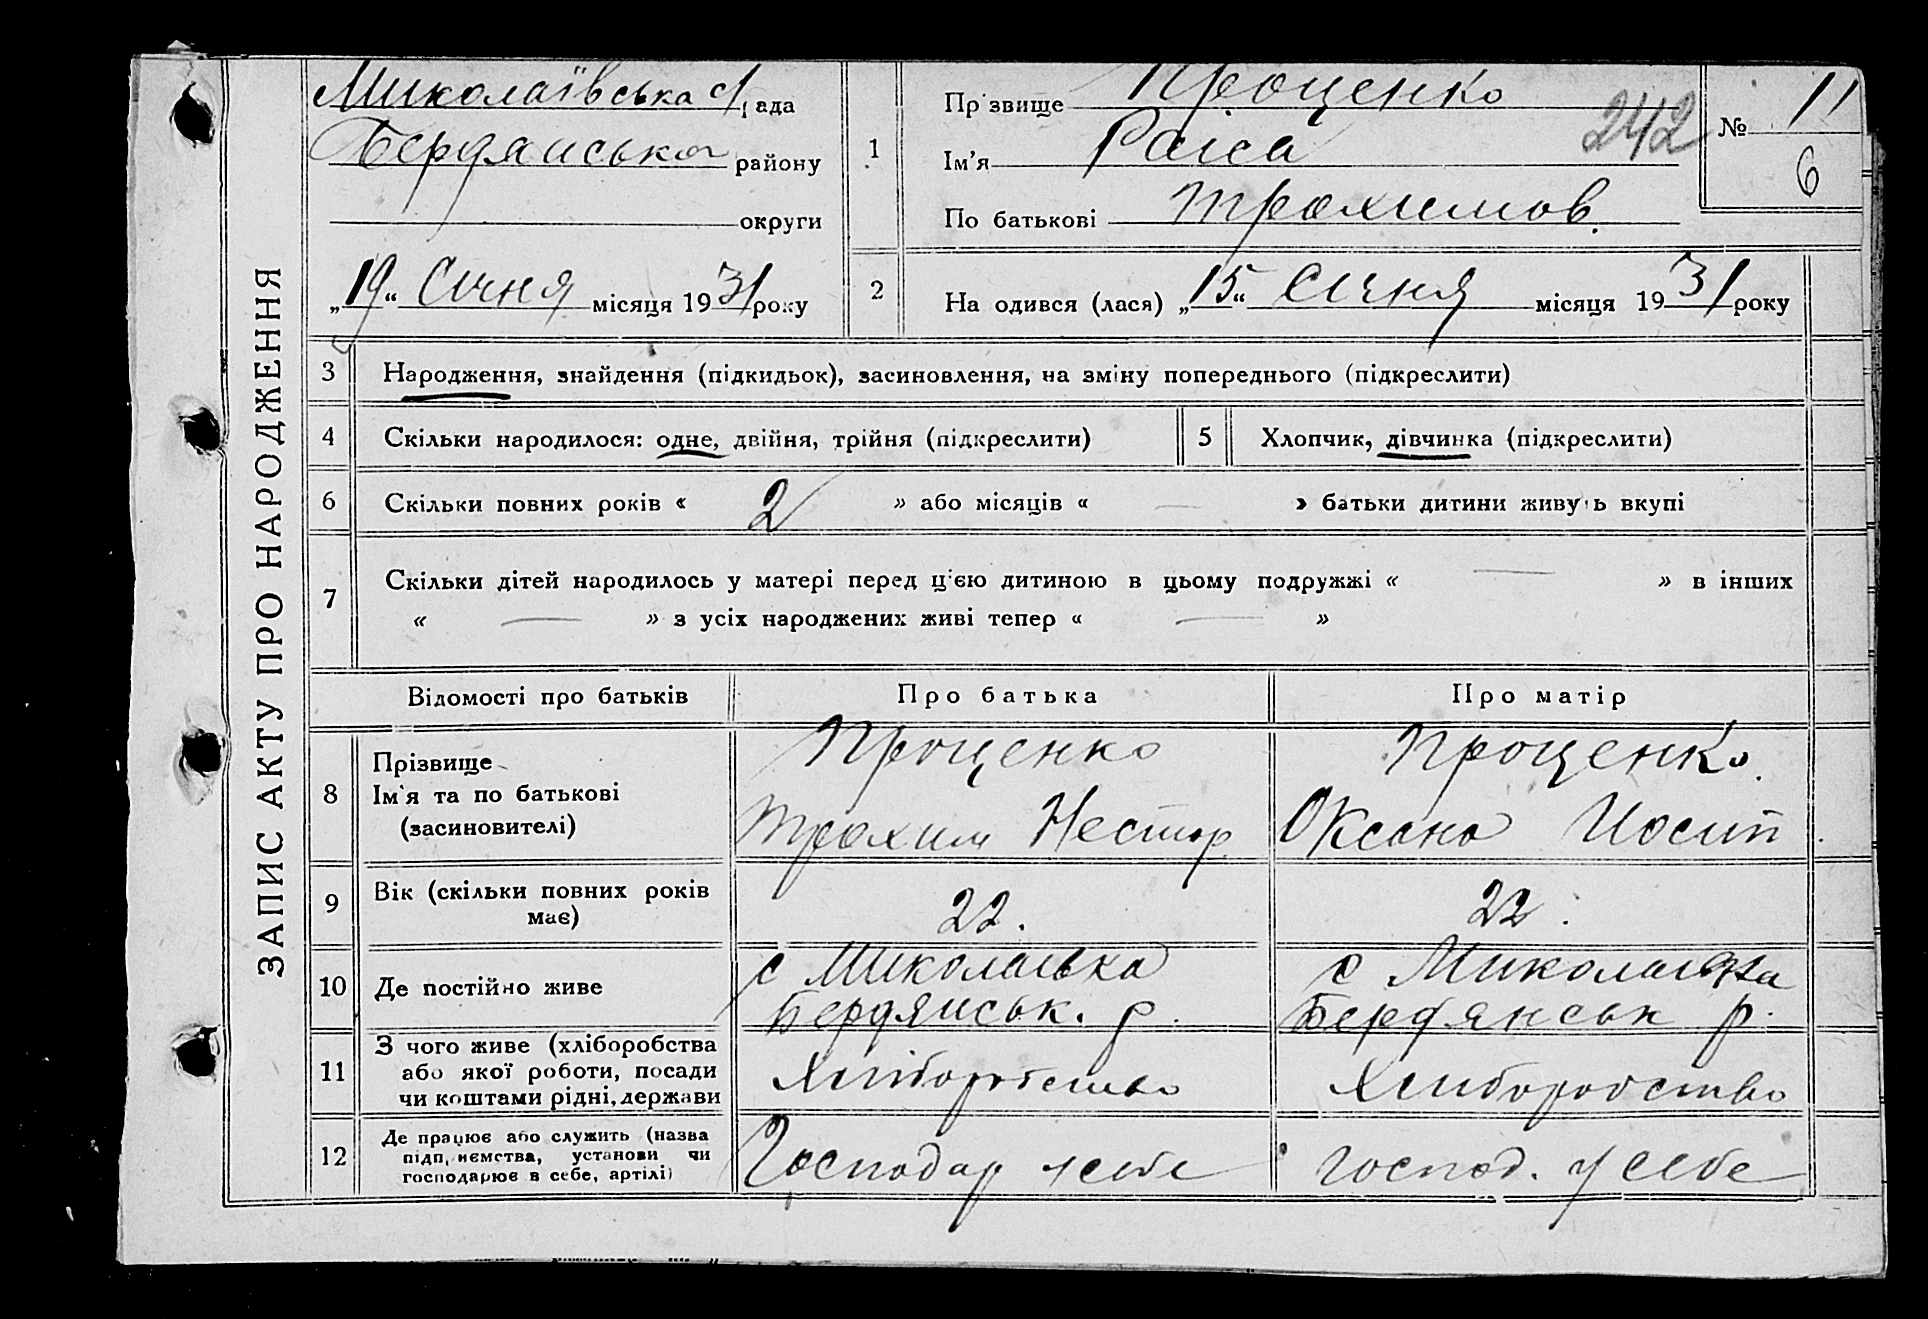 ЗАПИС АКТУ ПРО НАРОДЖЕННЯ
Миколаївська с/рада
Бердянська району
округи
„19“ Січня місяця 1931 року
1
Прізвище Проценко
Ім’я Раіса
По батькові Трохимов.
242
№ 11
6
2
На одився (лася) „15“ Січня місяця 1931 року
3 Народження, знайдення (підкидьок), засиновлення, на зміну попереднього (підкреслити)
4 Скільки народилося: одне, двійня, трійня (підкреслити) 5 Хлопчик, дівчинка (підкреслити)
6 Скільки повних років « 2 » або місяців « — » батьки дитини живуть вкупі
7 Скільки дітей народилось у матері перед цією дитиною в цьому подружжі « — » в інших
« — » з усіх народжених живі тепер « — »
Відомості про батьків Про батька Про матір
8 Прізвище Ім'я та по батькові (засиновителі)
Проценко Проценко.
Трохим Нестор Оксана Иосип
9 Вік (скільки повних років має) 22. 22.
10 Де постійно живе
с Миколаівка с Миколаівка
Бердянськ. р. Бердянськ р.
11 З чого живе (хліборобства або якої роботи, посади чи коштами рідні, держави
Хліборобство Хлиборобство
12 Де працює або служить (назва підп, иємства, установи чи господарює в себе, артілі)
Господар у себе господ. у себе